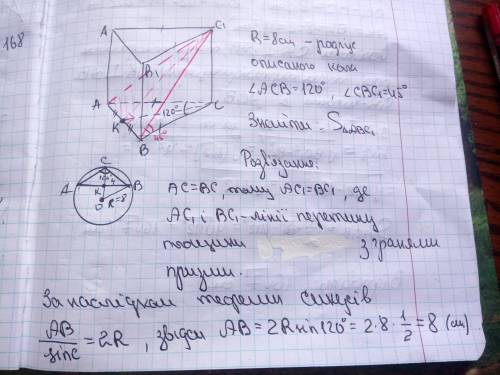 168
A
C₁
B₁
A
120°
C
K
B
45°
R=8см – радіус
описаного кола
∠ACB=120°, ∠CBC₁=45°
Знайти: S△ABC₁
Розв'язання:
C
A
K
B
O
R=8
AC=BC, тому AC₁=BC₁, де
AC₁ і BC₁ – лінії перетину
площини з гранями
призми.
За наслідком теореми синусів
AB/sinC = 2R, звідси AB = 2R sin120° = 2·8·1/2 = 8 (см)